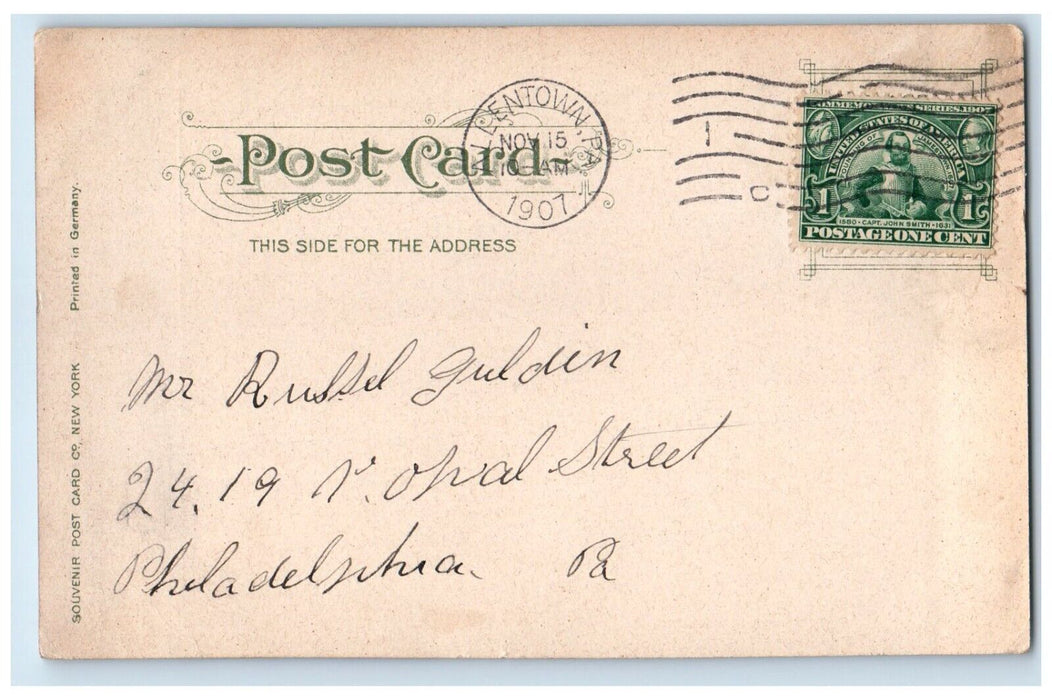 Post Card
THIS SIDE FOR THE ADDRESS
ALLENTOWN, PA.
NOV 15
10 AM
1907
1
C
COMMEMORATIVE SERIES, 1907
UNITED STATES OF AMERICA
FOUNDING OF JAMESTOWN
1580 - CAPT. JOHN SMITH - 1631
1 1
POSTAGE ONE CENT
Mr Russel Guldin
24.19 N. Opal Street
Philadelphia. Pa
SOUVENIR POST CARD Cº, NEW YORK Printed in Germany.